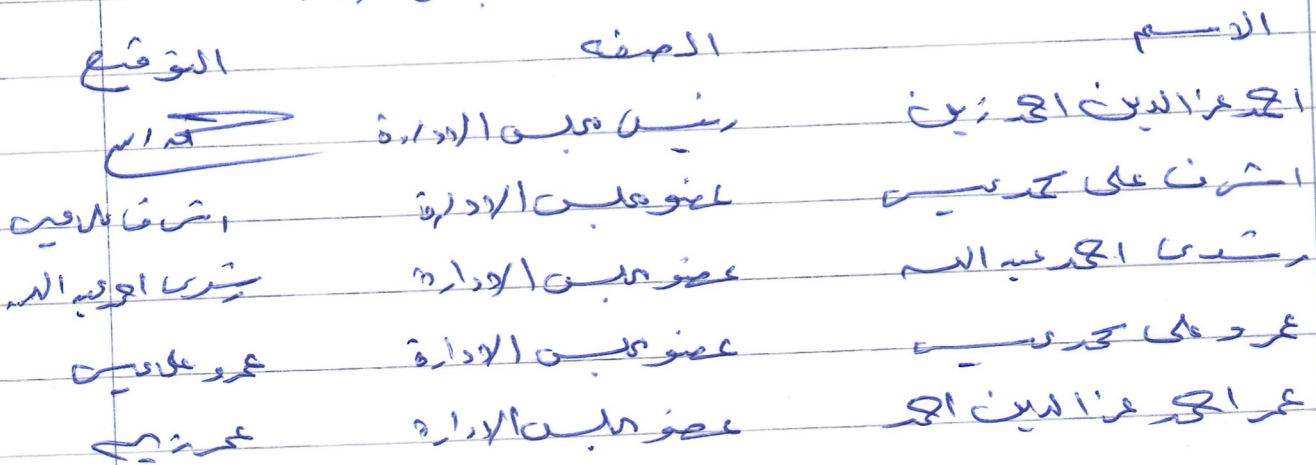 الاسم الصفه التوقيع
احمد عز الدين احمد زين رئيس مجلس الادارة
اشرف على محمد عيسى عضو مجلس الادارة اشرف على عيسى
رشدى احمد عبد الله عضو مجلس الادارة رشدى احمد عبد الله
عمرو على محمد عيسى عضو مجلس الادارة عمرو على عيسى
عمر احمد عز الدين احمد عضو مجلس الادارة عمر زين